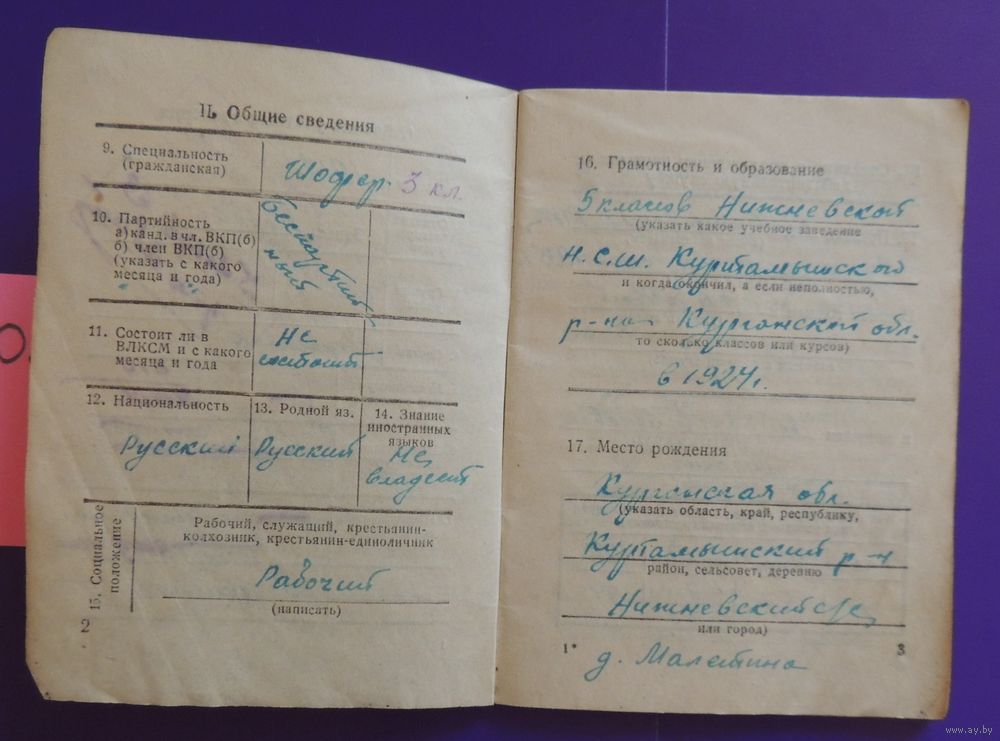 II. Общие сведения
9. Специальность
(гражданская)
Шофер 3 кл.
10. Партийность
а) канд. в чл. ВКП(б)
б) член ВКП(б)
(указать с какого
месяца и года)
беспартий
ный
11. Состоит ли в
ВЛКСМ и с какого
месяца и года
Не
состоит
12. Национальность
Русский
13. Родной яз.
Русский
14. Знание
иностранных
языков
Не
владеет
15. Социальное
положение
Рабочий, служащий, крестьянин-
колхозник, крестьянин-единоличник
Рабочий
(написать)
2
16. Грамотность и образование
5 классов Нижневской
(указать какое учебное заведение
Н.С.Ш. Куртамышского
и когда окончил, а если неполностью,
р-на Курганской обл.
то сколько классов или курсов)
в 1924г.
17. Место рождения
Курганская обл.
(указать область, край, республику,
Куртамышский р-н
район, сельсовет, деревню
Нижневский с/с
или город)
1*
3
д. Малетина
www.ay.by